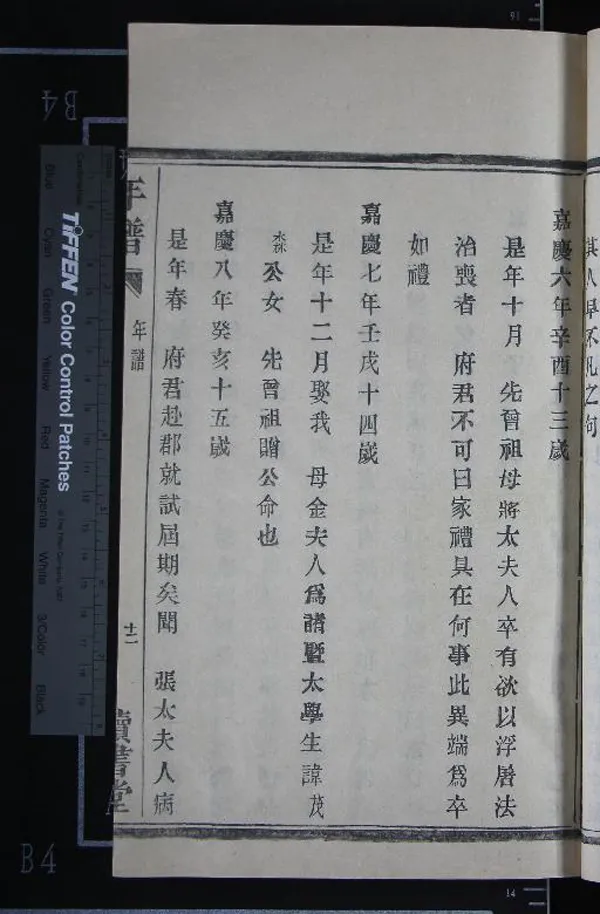 其人早不凡之句
嘉慶六年辛酉十三歲
是年十月 先曾祖母蔣太夫人卒有欲以浮屠法
治喪者 府君不可曰家禮具在何事此異端爲卒
如禮
嘉慶七年壬戌十四歲
是年十二月娶我 母金夫人爲諸暨太學生諱茂
森公女 先曾祖贈公命也
嘉慶八年癸亥十五歲
是年春 府君赴郡就試屆期矣聞 張太夫人病
年譜
年譜
十二
讀書堂
TIFFEN Color Control Patches
© The Tiffen Company, 2007
Centimetres
Blue
Cyan
Green
Yellow
Red
Magenta
White
3/Color
Black
B4
B4
91
14